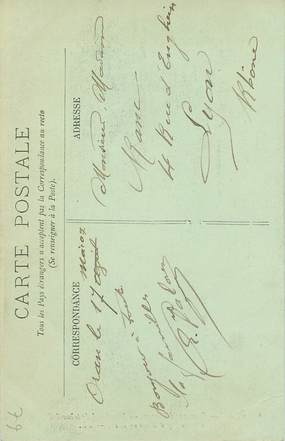 CARTE POSTALE
Tous les Pays étrangers n'acceptent pas la Correspondance au recto
(Se renseigner à la Poste).
CORRESPONDANCE
Oran le 17
Bonjour à toute
la famille
ADRESSE
Monsieur Madame
4 Rue d'Enghein
Lyon
Rhône